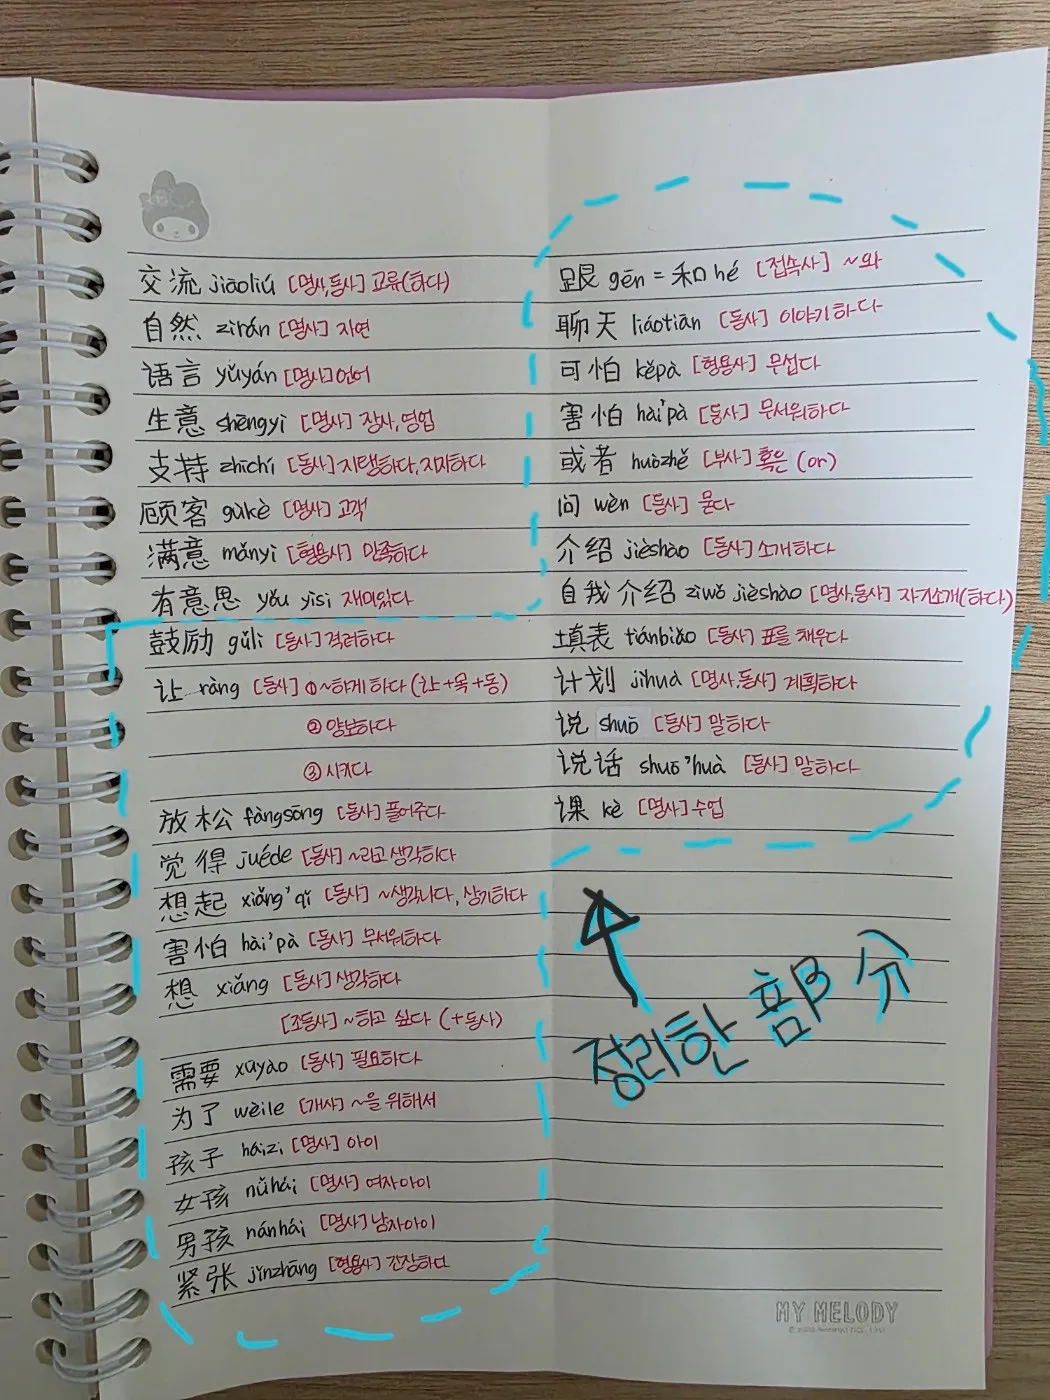 交流 jiāoliú [명사,동사] 교류(하다)
自然 zìrán [명사] 자연
语言 yǔyán [명사] 언어
生意 shēngyì [명사] 장사, 영업
支持 zhīchí [동사] 지탱하다, 지지하다
顾客 gùkè [명사] 고객
满意 mǎnyì [형용사] 만족하다
有意思 yǒu yìsi 재미있다
鼓励 gǔlì [동사] 격려하다
让 ràng [동사] ① ~하게 하다 (让+목+동)
② 양보하다
③ 시키다
放松 fàngsōng [동사] 풀어주다
觉得 juéde [동사] ~라고 생각하다
想起 xiǎng'qǐ [동사] ~생각나다, 상기하다
害怕 hài'pà [동사] 무서워하다
想 xiǎng [동사] 생각하다
[조동사] ~하고 싶다 (+동사)
需要 xūyào [동사] 필요하다
为了 wèile [개사] ~을 위해서
孩子 háizi [명사] 아이
女孩 nǚhái [명사] 여자아이
男孩 nánhái [명사] 남자아이
紧张 jǐnzhāng [형용사] 긴장하다
跟 gēn = 和 hé [접속사] ~와
聊天 liáotiān [동사] 이야기하다
可怕 kěpà [형용사] 무섭다
害怕 hài'pà [동사] 무서워하다
或者 huòzhě [부사] 혹은 (or)
问 wèn [동사] 묻다
介绍 jièshào [동사] 소개하다
自我介绍 zìwǒ jièshào [명사,동사] 자기소개(하다)
填表 tiánbiǎo [동사] 표를 채우다
计划 jìhuà [명사,동사] 계획하다
说 shuō [동사] 말하다
说话 shuō'huà [동사] 말하다
课 kè [명사] 수업
정리한 部分
MY MELODY